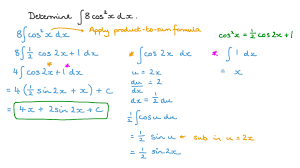 Determine ∫8cos²x dx.
8∫cos²x dx → Apply product-to-sum formula
cos²x = ½cos2x + 1
8∫½ cos2x + 1 dx
4∫cos2x + 1 dx
= 4(½ sin2x + x) + C
= 4x + 2sin2x + C
* ∫cos2x dx
u = 2x
du/dx = 2
dx = ½ du
½∫cos u du
= ½ sin u ← sub in u = 2x
= ½ sin2x
* ∫1 dx
= x